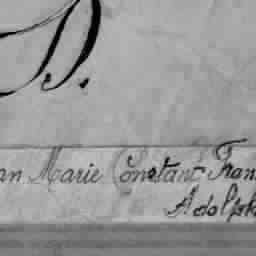 D.
an Marie Constant Fran
Adolph